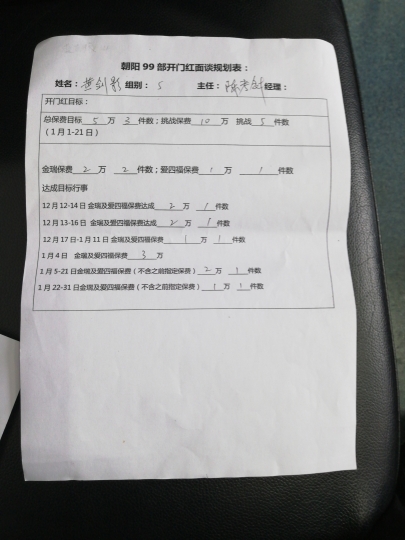 朝阳 99 部开门红面谈规划表：
姓名： 组别： 5 主任： 经理：
开门红目标：
总保费目标 5 万 3 件数；挑战保费 10 万 挑战 5 件数
（1月1-21日）
金瑞保费 2 万 2 件数；爱四福保费 1 万 1 件数
达成目标行事
12月12-14日 金瑞及爱四福保费达成 2 万 1 件数
12月13-16日 金瑞及爱四福保费达成 2 万 1 件数
12月17日-1月11日 金瑞及爱四福保费 1 万 1 件数
1月4日 金瑞及爱四福保费 3 万
1月5-21日金瑞及爱四福保费（不含之前指定保费） 2 万 1 件数
1月22-31日金瑞及爱四福保费（不含之前指定保费） 1 万 1 件数